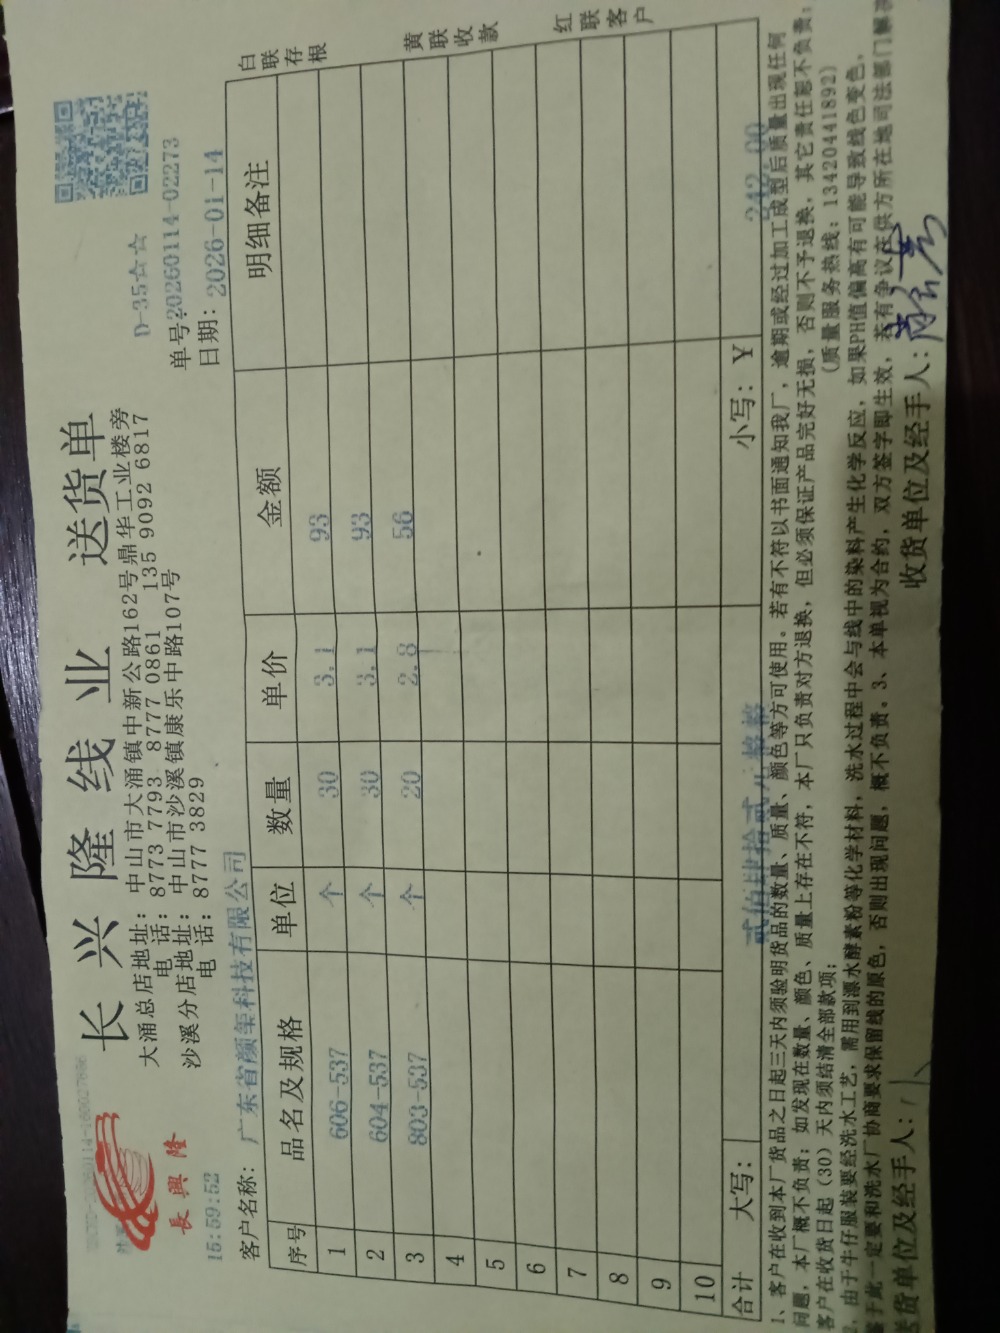 長興隆
长兴隆线业 送货单
大涌总店地址：中山市大涌镇中新公路162号鼎华工业楼旁
电 话：8773 7793 8777 0861 135 9092 6817
沙溪分店地址：中山市沙溪镇康乐中路107号
电 话：8777 3829
D-35☆☆
单号：20260114-02273
15:59:52
日期：2026-01-14
客户名称：广东省颜玺科技有限公司
序号 品名及规格 单位 数量 单价 金额 明细备注
1 606-537 个 30 3.1 93
2 604-537 个 30 3.1 93
3 803-537 个 20 2.8 56
4
5
6
7
8
9
10
合计 大写：贰佰肆拾贰元整 小写：￥ 242.00
白联存根
黄联收款
红联客户
1、客户在收到本厂货品之日起三天内须验明货品的数量、质量、颜色等方可使用。若有不符以书面通知我厂，逾期或经过加工成型后质量出现任何
问题，本厂概不负责；如发现在数量、颜色、质量上存在不符，本厂只负责对方退换，但必须保证产品完好无损，否则不予退换，其它责任恕不负责；
客户在收货日起（30）天内须结清全部款项； （质量服务热线：13420441892）
2、由于牛仔服装要经洗水工艺，需用到漂水酵素粉等化学材料，洗水过程中会与线中的染料产生化学反应，如果PH值偏高有可能导致线色变色，
鉴于此一定要和洗水厂协商要求保留线的原色，否则出现问题，概不负责。3、本单视为合约，双方签字即生效，若有争议在供方所在地司法部门解决
送货单位及经手人： 收货单位及经手人：